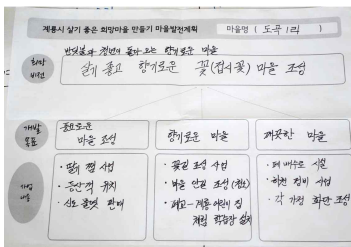 계룡시 살기 좋은 희망마을 만들기 마을발전계획 마을명 ( 도곡 1리 )
희망
비전
반딧불과 청년이 돌아오는 향기로운 마을
살기 좋고 향기로운 꽃(접시꽃) 마을 조성
개발
목표
풍요로운
마을 조성
향기로운 마을
깨끗한 마을
사업
내용
· 딸기 잼 사업
· 등산객 유치
· 꽃길 조성 사업
· 마을 안길 조성 (정비)
· 폐교-계룡 어린이 집
체험 학습장 설치
· 폐 배수로 시설
· 하천 정비 사업
· 각 가정 화단 조성